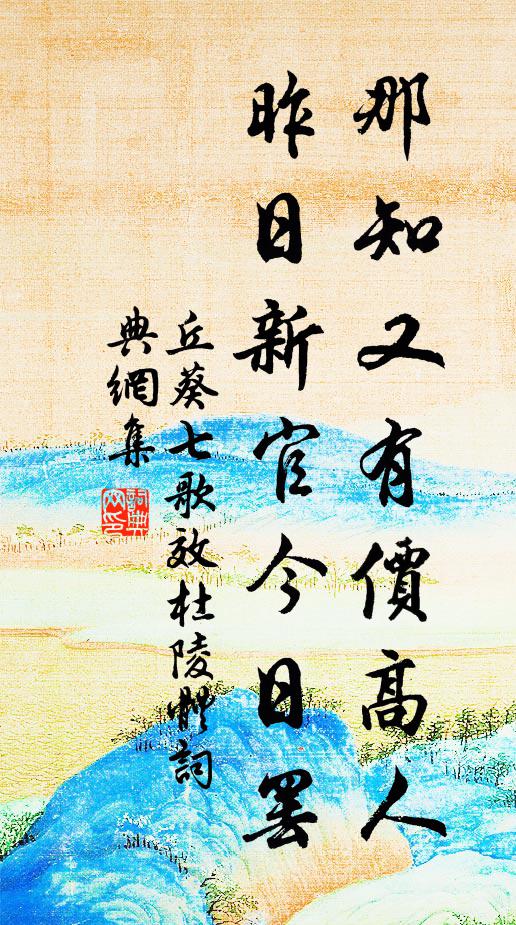 那知又有價高人
昨日新官今日罢
丘葵七歌效杜陵體詞
典網集
詞典網印